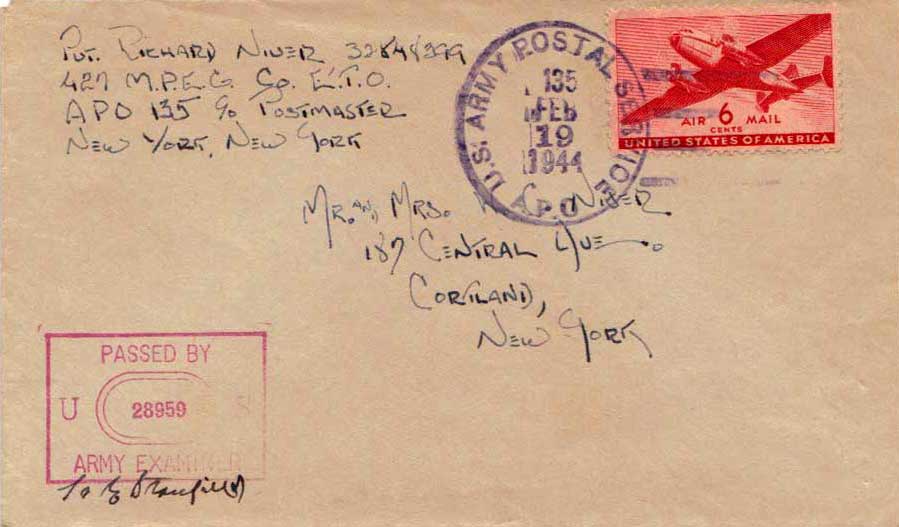 Pvt. Richard Niver 32848399
427 M.P.E.G. Co. E.T.O.
APO 135 c/o Postmaster
New York, New York
U.S. ARMY POSTAL SERVICE
135
FEB
19
1944
A.P.O.
AIR 6 MAIL
CENTS
UNITED STATES OF AMERICA
Mr. and Mrs. Niver
187 Central Ave.
Cortland,
New York
PASSED BY
U 28959 S
ARMY EXAMINER